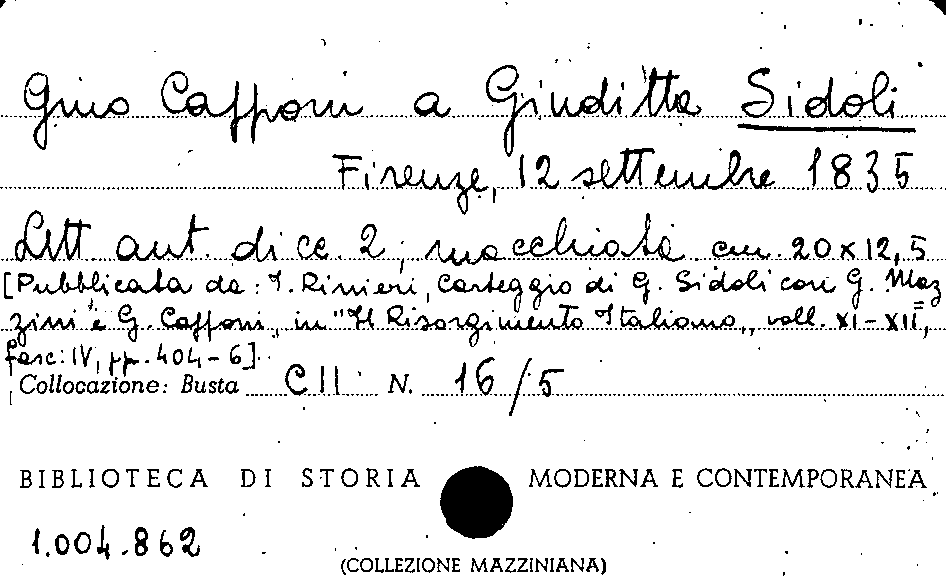 Gino Capponi a Giuditta Sidoli
Firenze, 12 settembre 1835
Lett. aut. di cc. 2, macchiata cm. 20 x 12,5
[Pubblicata da: I. Rinieri, Carteggio di G. Sidoli con G. Maz
zini e G. Capponi, in "Il Risorgimento Italiano", voll. XI-XII,
fasc: IV, pp. 404-6].
Collocazione: Busta C II N. 16/5
BIBLIOTECA DI STORIA MODERNA E CONTEMPORANEA
1.004.862
(COLLEZIONE MAZZINIANA)